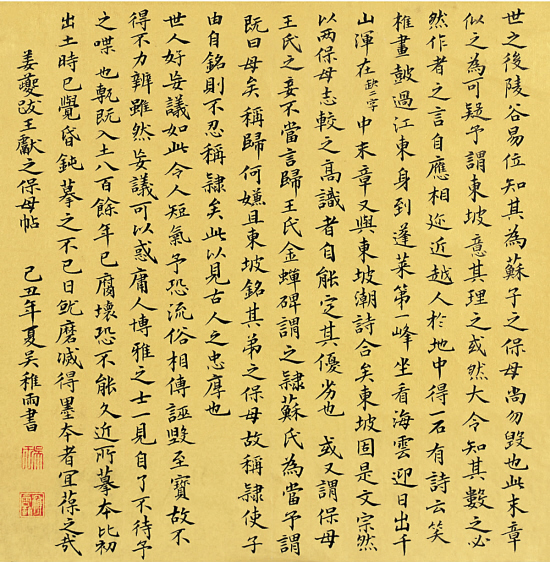 世之後陵谷易位知其為蘇子之保母尚勿毁也此末章
似之為可疑予謂東坡意其理之或然大令知其數之必
然作者之言自應相近越人於地中得一石有詩云笑
權畫鼓過江東身到蓬萊第一峰坐看海雲迎日出千
山渾在欠二字中末章又與東坡潮詩合矣東坡固是文宗然
以兩保母志較之高識者自能定其優劣也或又謂保母
王氏之妾不當言歸王氏金蟬碑謂之隸蘇氏為當予謂
既曰母矣稱歸何嫌且東坡銘其弟之保母故稱隸使子
由自銘則不忍稱隸矣此以見古人之忠厚也
世人好妄議如此令人短氣予恐流俗相傳誣毀至寶故不
得不力辨雖然妄議可以惑庸人博雅之士一見自了不待予
之喋也甎既入土八百餘年已腐壞恐不能久近所摹本比初
出土時已覺昏鈍摹之不已日就磨滅得墨本者宜葆之哉
姜夔跋王獻之保母帖 己丑年夏吴稚雨書